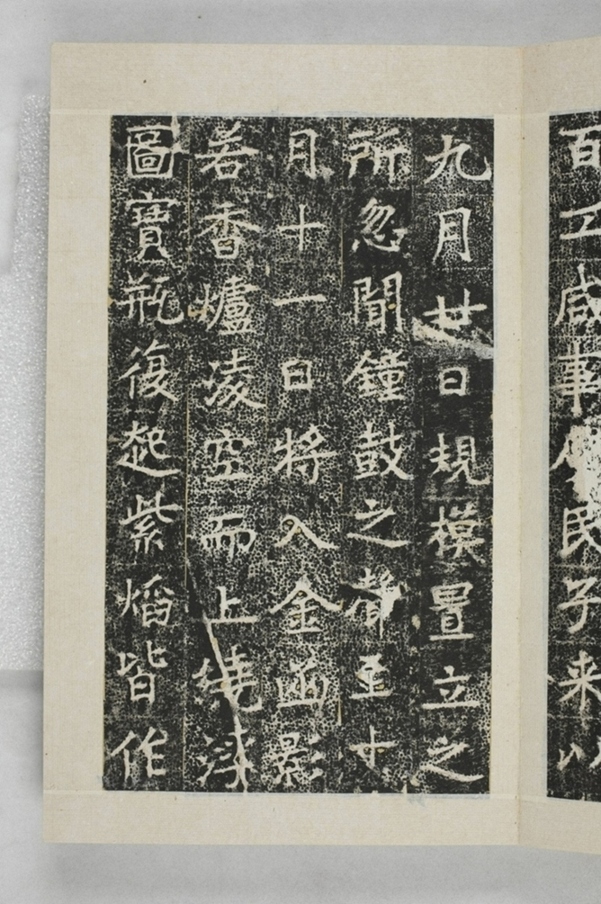 百工咸事庶民子来以
九月廿日規模置立之
所忽聞鐘鼓之聲至十
月十一日將入金函影
若香爐凌空而上繞浮
圖寶瓶復起紫焰皆作